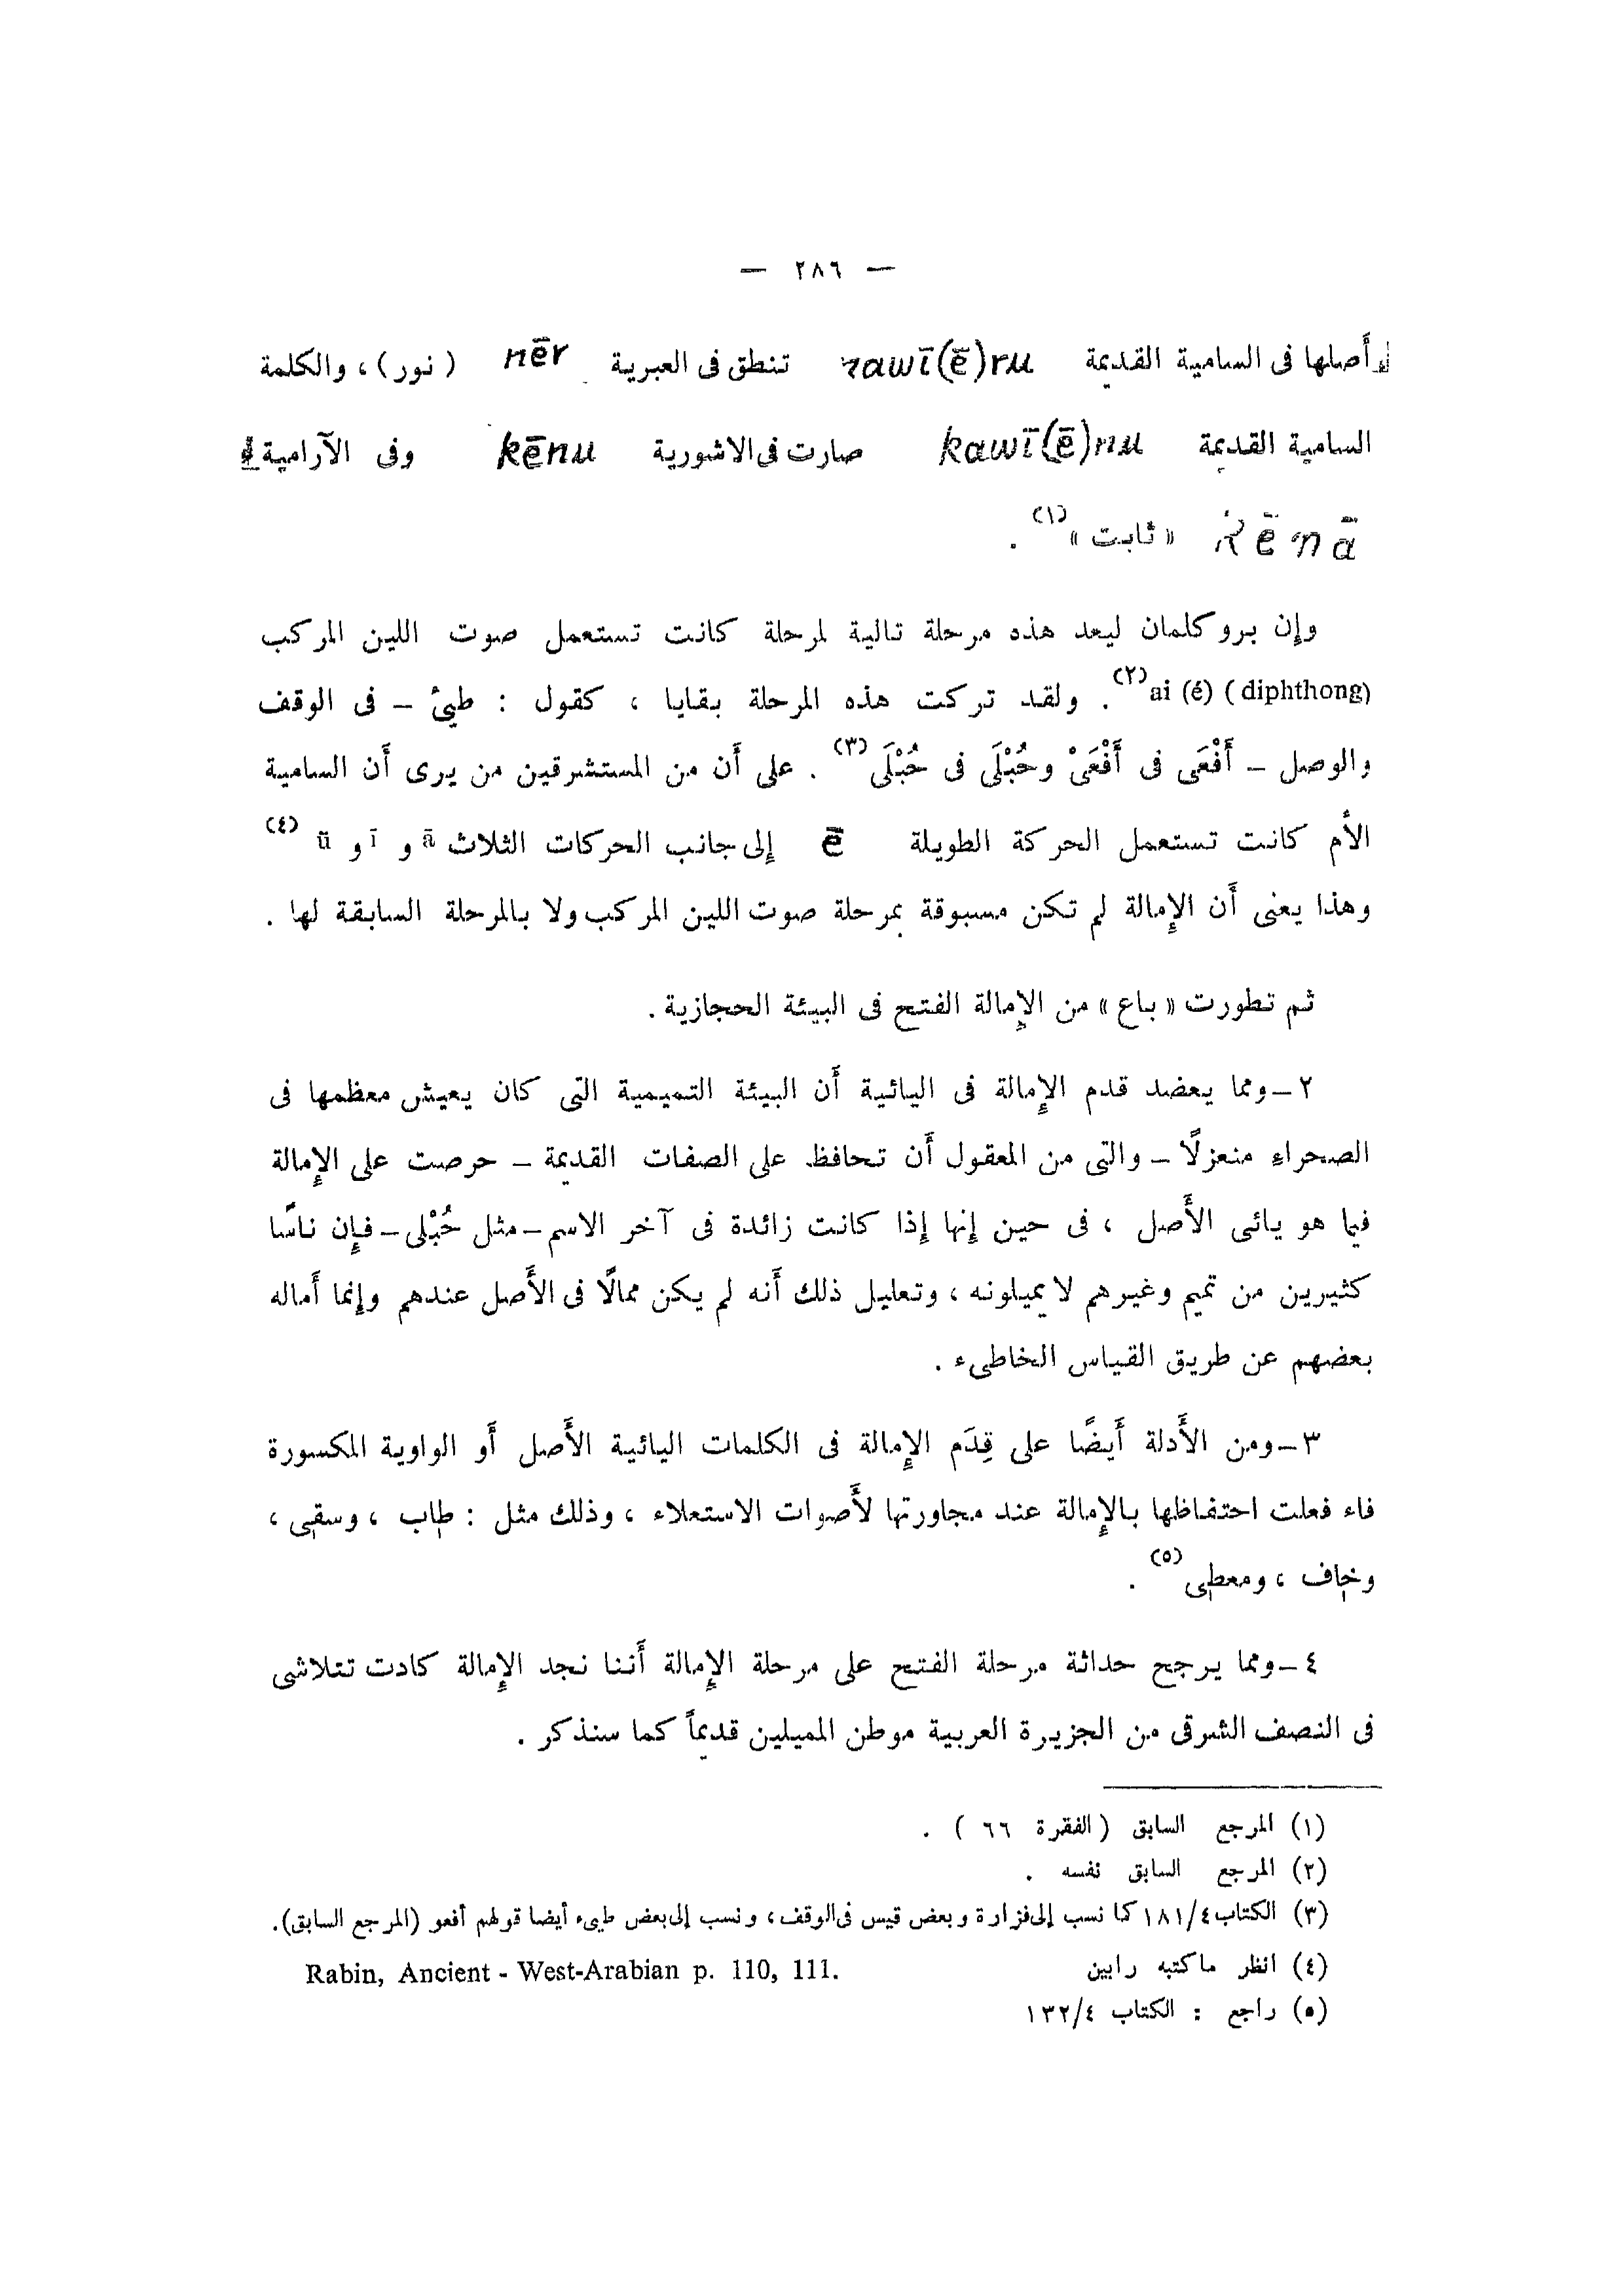 — ٢٨٦ —
أصلها فى السامية القديمة nawī(ē)ru تنطق فى العبرية nēr (نور)، والكلمة
السامية القديمة kawī(ē)nu صارت فى الاشورية kēnu وفى الآرامية
kēnā « ثابت »(١) .
وإن بروكلمان ليعد هذه مرحلة تالية لمرحلة كانت تستعمل صوت اللين المركب
ai (é) (diphthong)(٢). ولقد تركت هذه المرحلة بقايا ، كقول : طيئ – فى الوقف
والوصل – أَفْعَى فى أَفْعَىْ وحُبْلَى فى حُبْلَى(٣) . على أَن من المستشرقين من يرى أَن السامية
الأُم كانت تستعمل الحركة الطويلة ē إلى جانب الحركات الثلاث ā و ī و ū (٤)
وهذا يعنى أَن الإِمالة لم تكن مسبوقة بمرحلة صوت اللين المركب ولا بالمرحلة السابقة لها .
ثم تطورت « باع » من الإِمالة الفتح فى البيئة الحجازية .
٢ – ومما يعضد قدم الإِمالة فى اليائية أَن البيئة التميمية التى كان يعيش معظمها فى
الصحراءِ منعزلًا – والتى من المعقول أَن تحافظ على الصفات القديمة – حرصت على الإِمالة
فيما هو يائى الأَصل ، فى حين إنها إِذا كانت زائدة فى آخر الاسم – مثل حُبْلى – فإِن ناسًا
كثيرين من تميم وغيرهم لا يميلونه ، وتعليل ذلك أَنه لم يكن ممالًا فى الأَصل عندهم وإنما أَماله
بعضهم عن طريق القياس الخاطىء .
٣ – ومن الأَدلة أَيضًا على قِدَم الإِمالة فى الكلمات اليائية الأَصل أَو الواوية المكسورة
فاء فعلت احتفاظها بالإِمالة عند مجاورتها لأَصوات الاستعلاء ، وذلك مثل : طاب ، وسقى ،
وخاف ، ومعطى(٥) .
٤ – ومما يرجح حداثة مرحلة الفتح على مرحلة الإِمالة أَننا نجد الإِمالة كادت تتلاشى
فى النصف الشرقى من الجزيرة العربية موطن المميلين قديماً كما سنذكر .
(١) المرجع السابق (الفقرة ٦٦ ) .
(٢) المرجع السابق نفسه .
(٣) الكتاب ٤/١٨١ كما نسب إلى فزارة وبعض قيس فى الوقف ، ونسب إلى بعض طيىء أيضا قولهم أفعو (المرجع السابق).
(٤) انظر ماكتبه رابين Rabin, Ancient - West-Arabian p. 110, 111.
(٥) راجع : الكتاب ٤/١٣٢